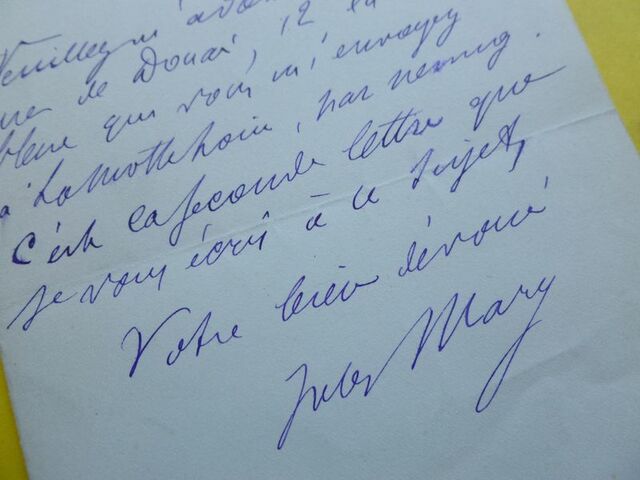 Veuillez m'adr
rue de Douai, 12 la
bleue que vous m'envoyez
à Lamotte par
C'est la seconde lettre que
je vous écris à ce sujet,
Votre bien dévoué
Jules Mary